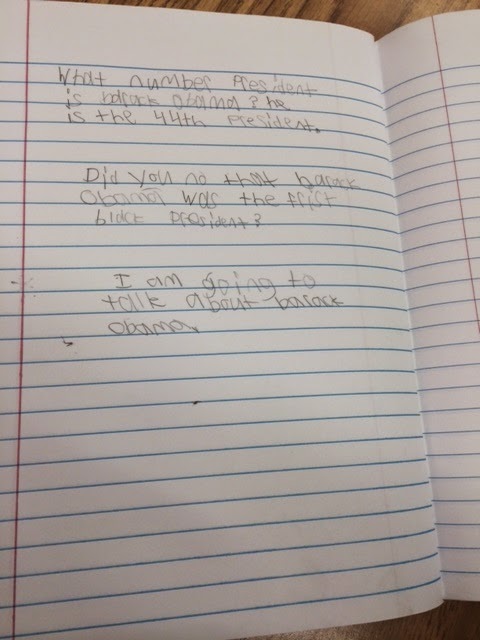 What number President
is barack obama? he
is the 44th President.
Did you no that barack
Obama was the frist
black President?
I am going to
talk about barack
obama.